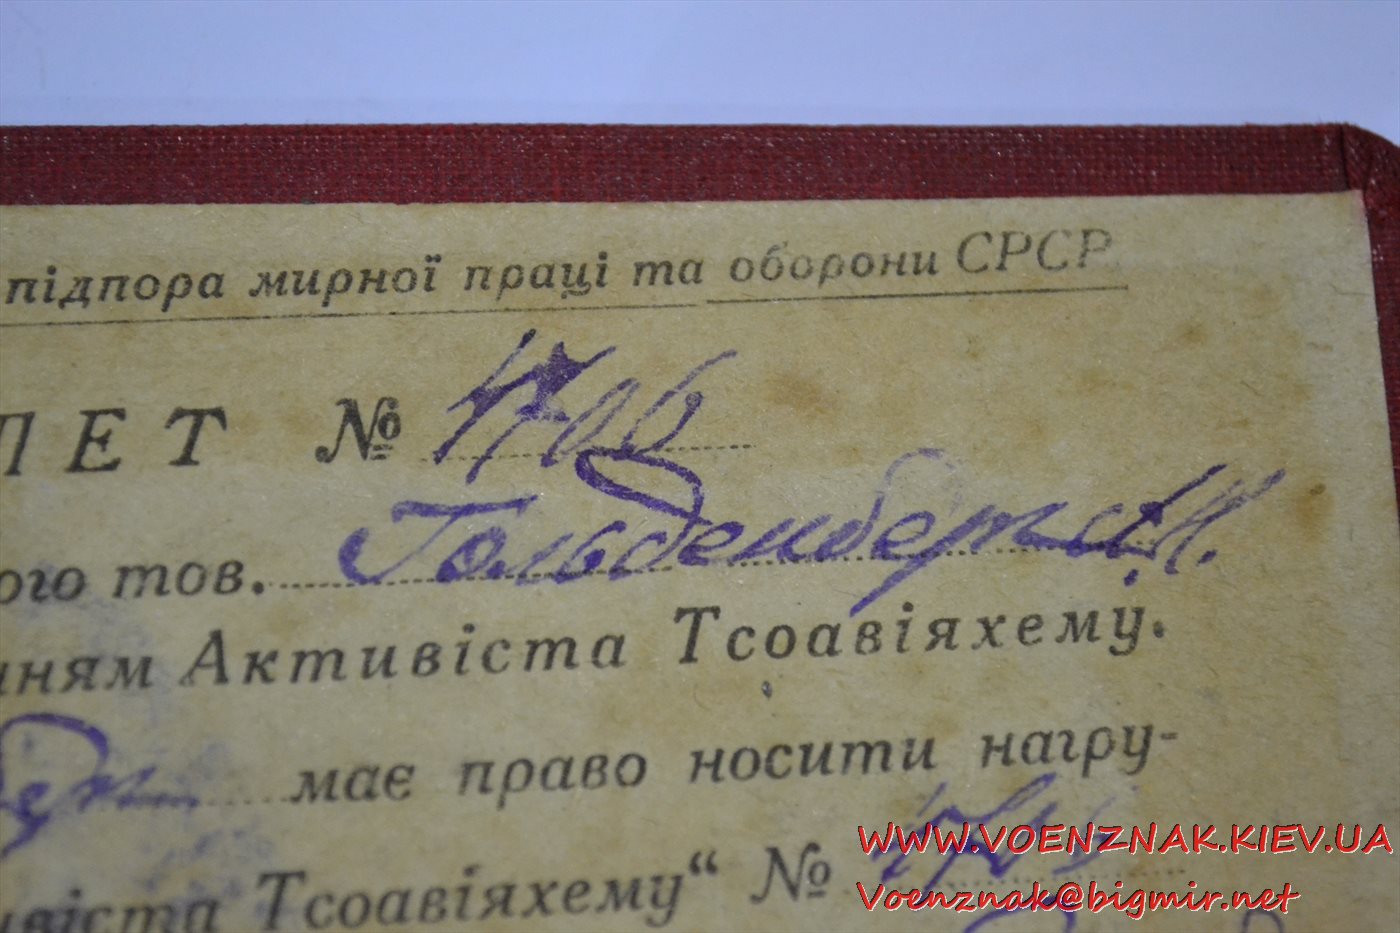 підпора мирної праці та оборони СРСР
ЛЕТ № 4706
ого тов. Гольденберг А.И.
нням Активіста Тсоавіяхему.
має право носити нагру-
ивіста Тсоавіяхему“ №
WWW.VOENZNAK.KIEV.UA
Voenznak@bigmir.net